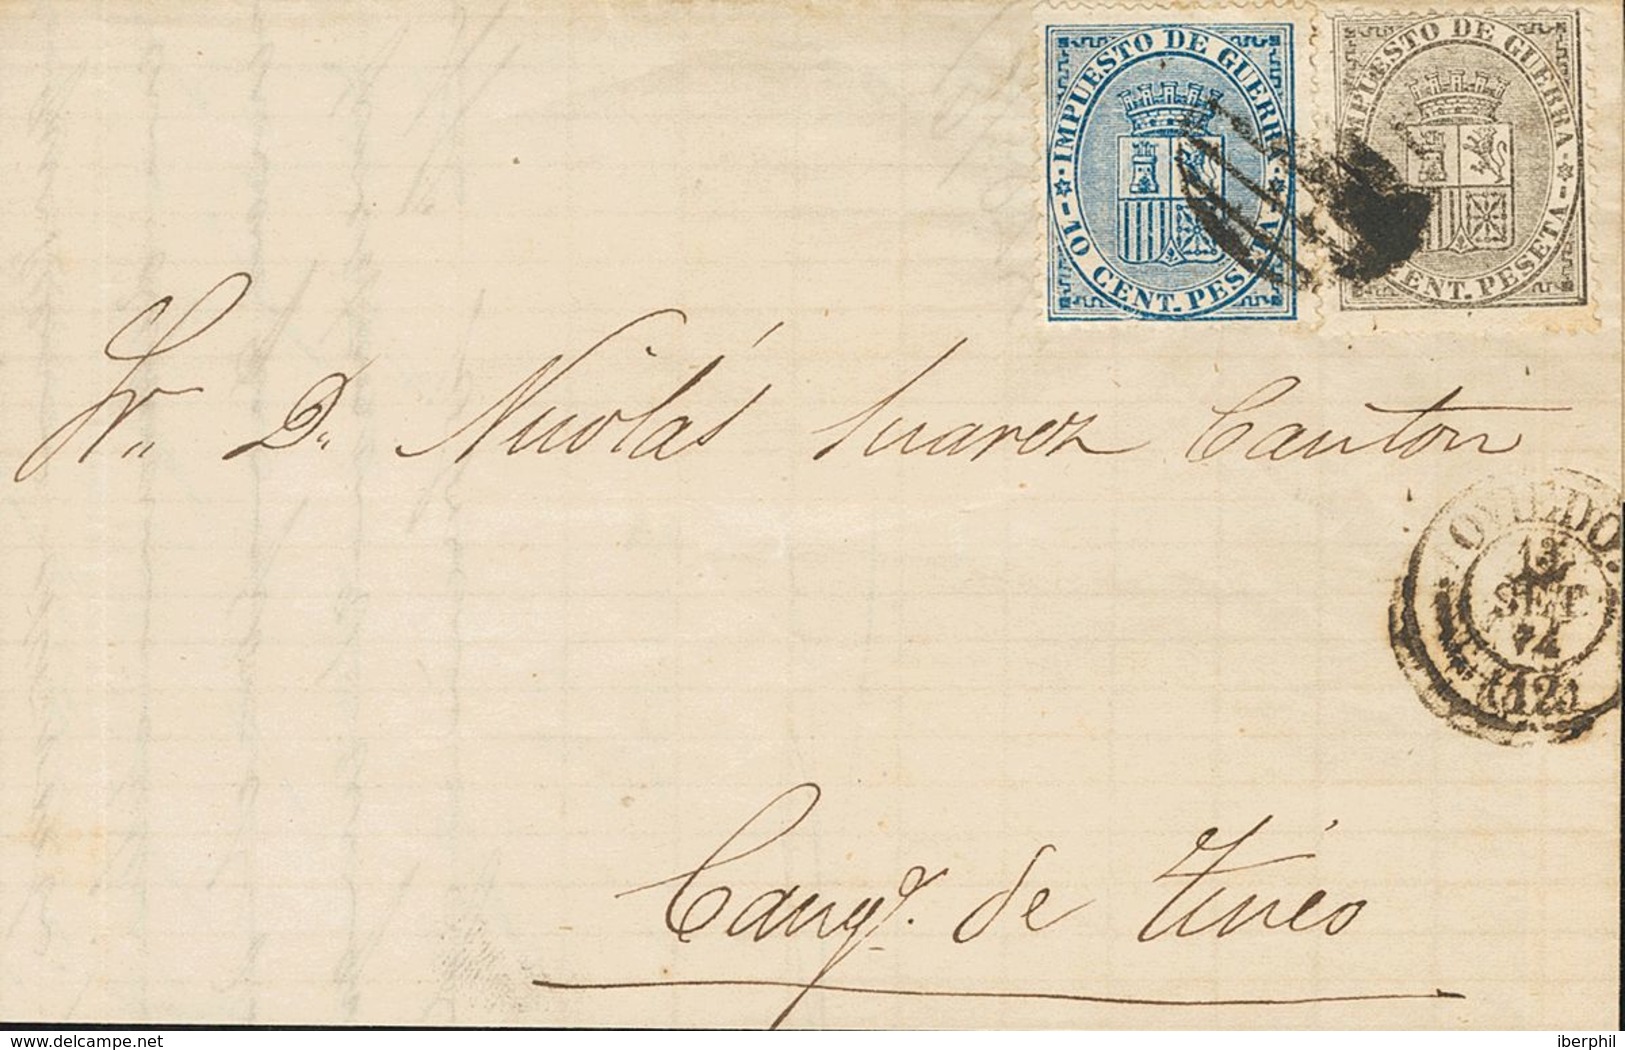 IMPUESTO DE GUERRA
10 CENT. PESETA
IMPUESTO DE GUERRA
CENT. PESETA
Sr. D. Nicolás Suarez Canton
OVIEDO.
13
SET
74
(12)
Cangs. de Tinéo
delcampe.net
iberphil